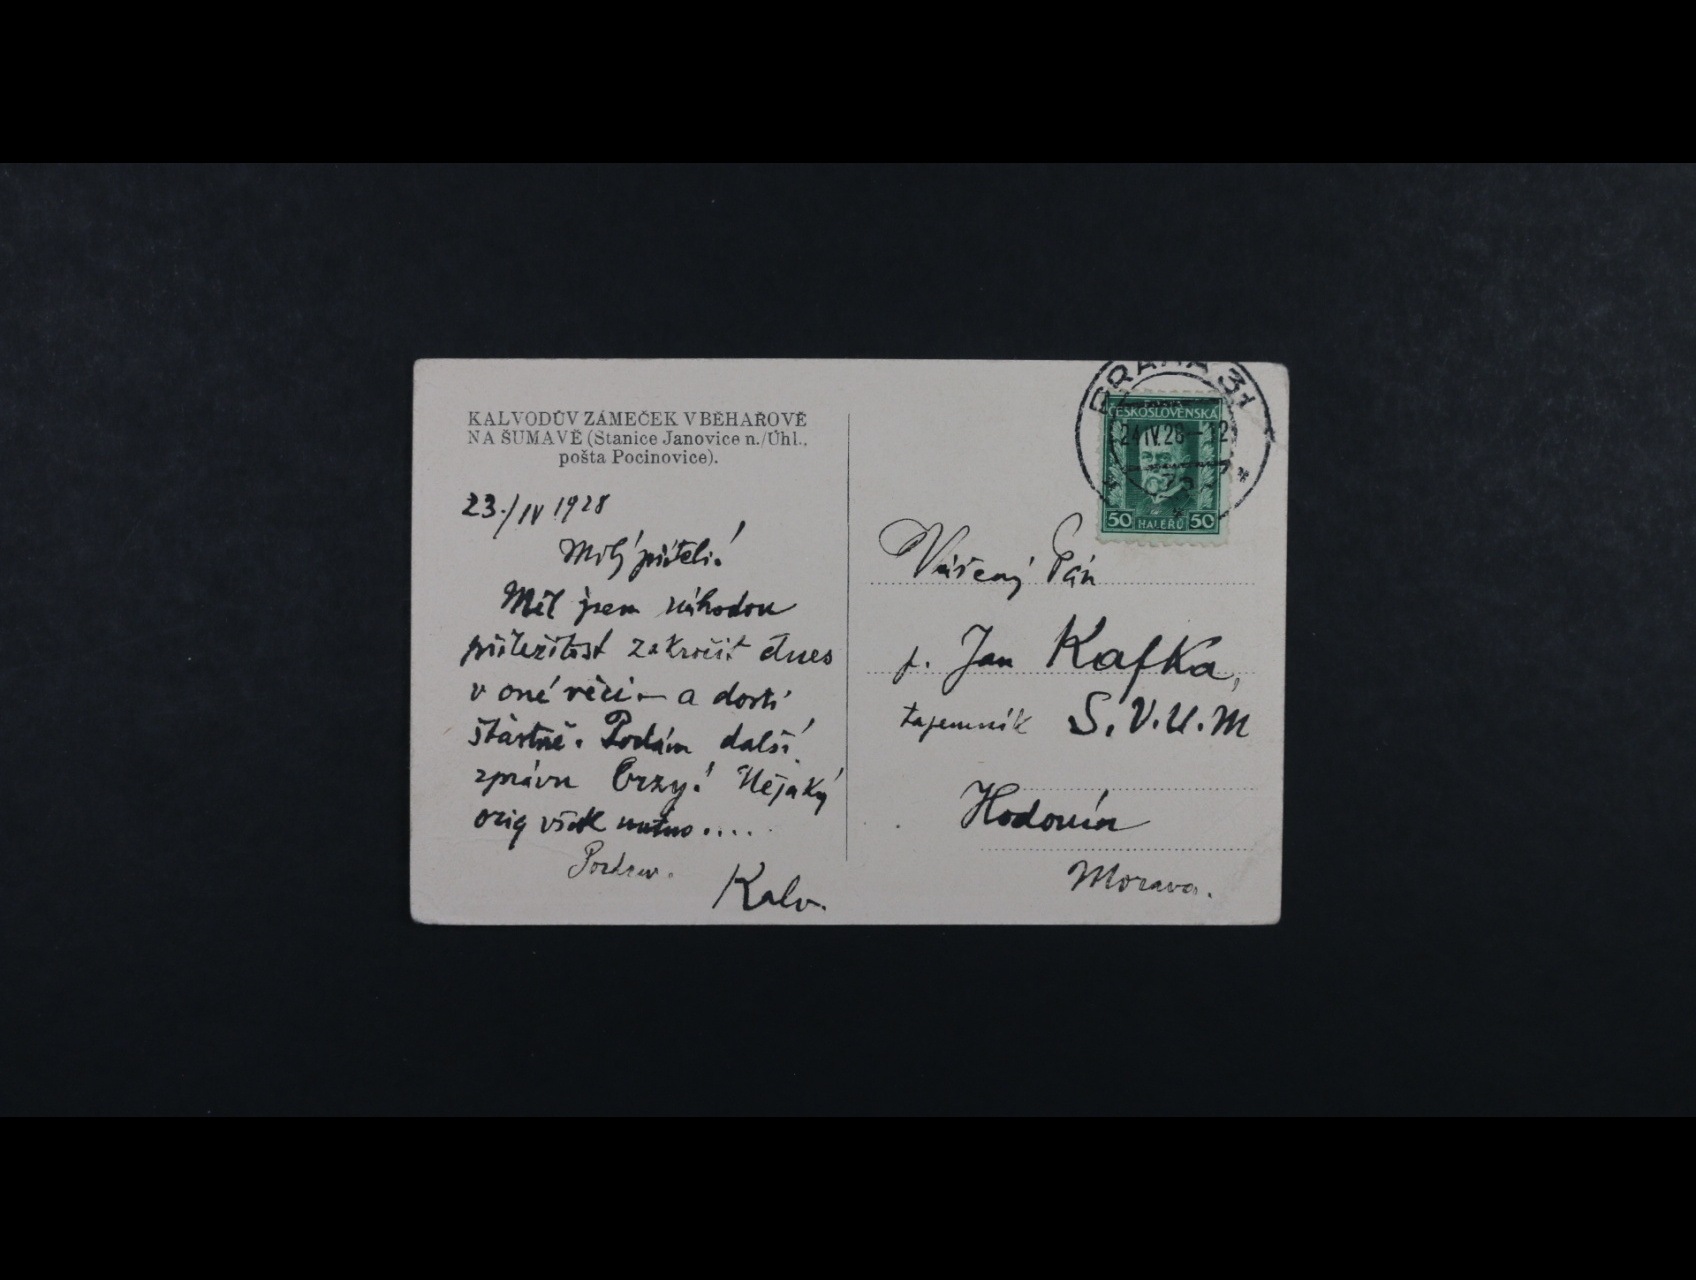 KALVODŮV ZÁMEČEK V BĚHAŘOVĚ
NA ŠUMAVĚ (Stanice Janovice n./Úhl.,
pošta Pocinovice).
23./IV 1928
Milý příteli!
Měl jsem náhodou
příležitost zakročit dnes
v oné věci – a dosti
šťastně. Podám další
zprávu brzy! Nějaký
orig však nutno....
Pozdrav.
Kalv.
PRAHA 31
ČESKOSLOVENSKÁ
24.IV.28–12
50 HALÉŘŮ 50
Vážený Pán
p. Jan Kafka,
tajemník S.V.U.M
Hodonín
Morava.